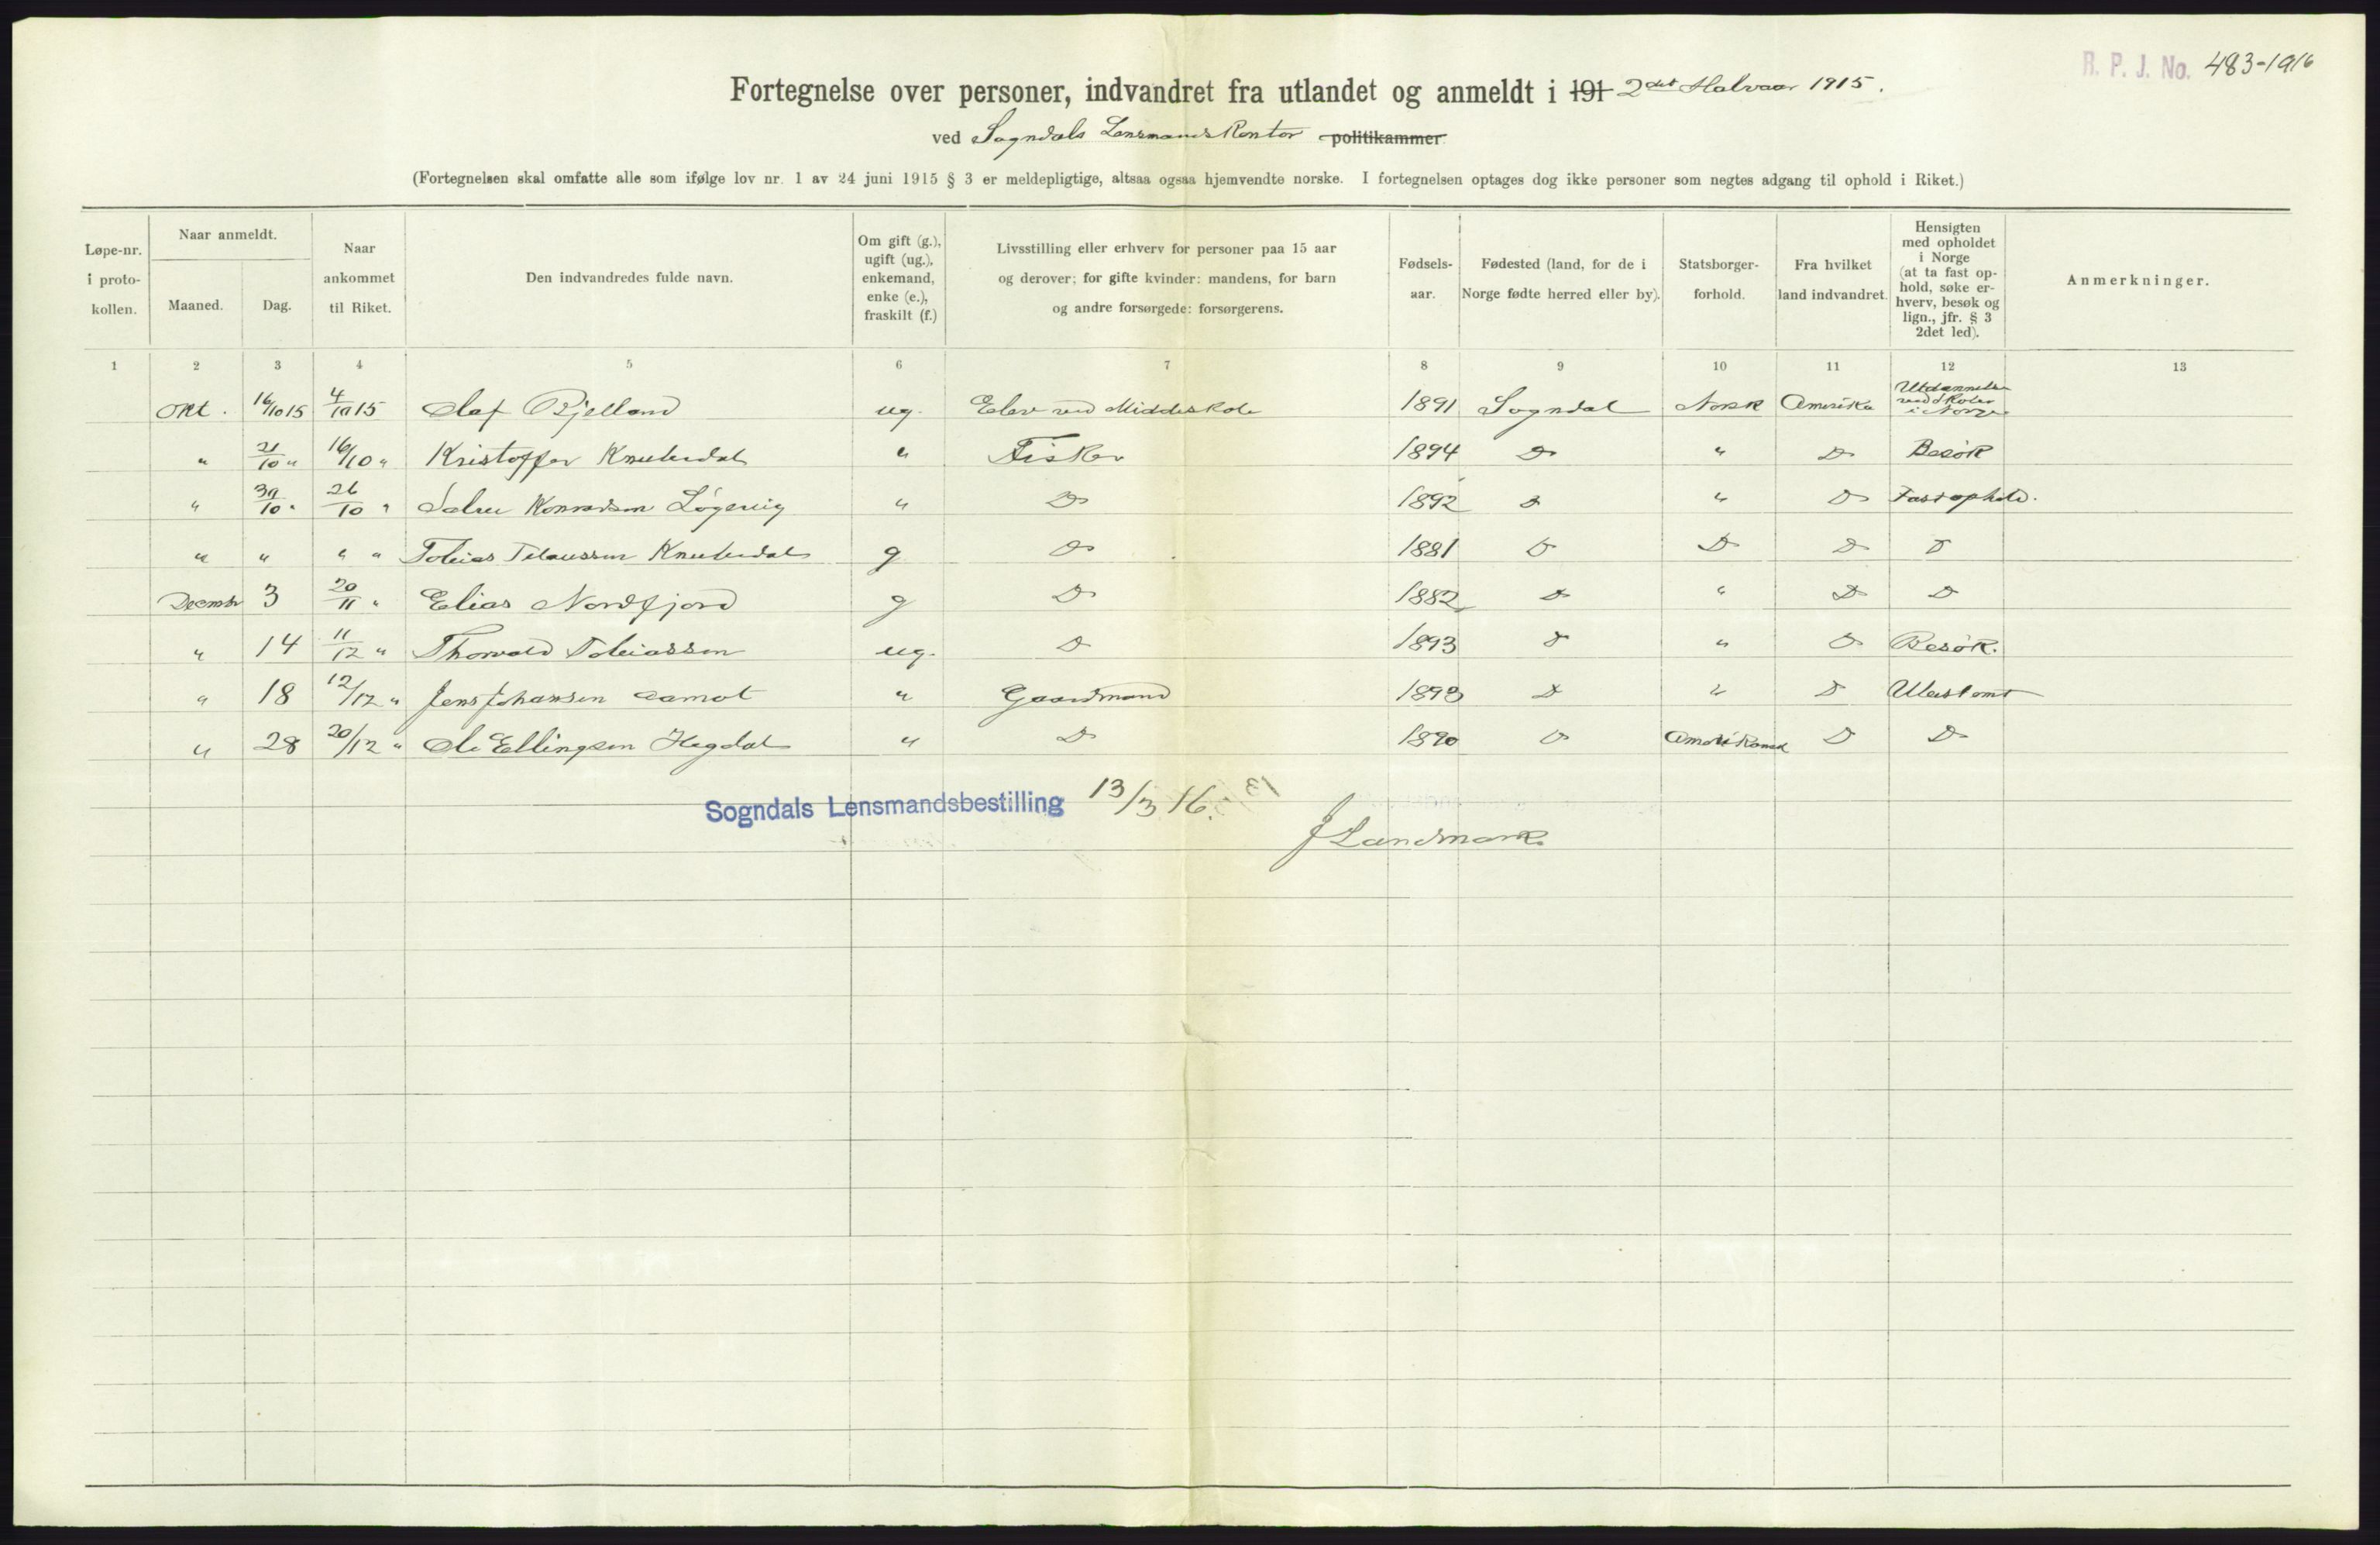 R. P. J. No. 483-1916
Fortegnelse over personer, indvandret fra utlandet og anmeldt i 191 2det Halvaar 1915.
ved Sogndals Lensmandskontor politikammer
(Fortegnelsen skal omfatte alle som ifølge lov nr. 1 av 24 juni 1915 § 3 er meldepligtige, altsaa ogsaa hjemvendte norske. I fortegnelsen optages dog ikke personer som negtes adgang til ophold i Riket.)
Løpe-nr. i proto-kollen.
Naar anmeldt.
Maaned.
Dag.
Naar ankommet til Riket.
Den indvandredes fulde navn.
Om gift (g.), ugift (ug.), enkemand, enke (e.), fraskilt (f.)
Livsstilling eller erhverv for personer paa 15 aar og derover; for gifte kvinder: mandens, for barn og andre forsørgede: forsørgerens.
Fødsels-aar.
Fødested (land, for de i Norge fødte herred eller by).
Statsborger-forhold.
Fra hvilket land indvandret.
Hensigten med opholdet i Norge (at ta fast op-hold, søke er-hverv, besøk og lign., jfr. § 3 2det led).
Anmerkninger.
1 2 3 4 5 6 7 8 9 10 11 12 13
Okt. 16/10 15 4/10 15 Olaf Bjelland ug. Elev ved Middelskole 1891 Sogndal Norsk Amerika Utdannelse ved Skoler i Norge
" 21/10 " 16/10 " Kristoffer Knubedal " Fisker 1894 Do " Do Besøk
" 30/10 " 26/10 " Konradsen Løgevig " Do 1892 Do " Do Fast ophold.
" " " " Tobias Knubedal g Do 1881 Do Do Do Do
Decembr 3 20/11 " Elias Nordfjord g Do 1882 Do " Do Do
" 14 11/12 " Thorvald Tobiassen ug. Do 1893 Do " Do Besøk.
" 18 12/12 " Jens Johansen Aamot " Gaardmand 1893 Do " Do Ubestemt
" 28 20/12 " Ole Ellingsen Hegdal " Do 1890 Do Amerikansk Do Do
Sogndals Lensmandsbestilling 13/3 16.
J Landmark.